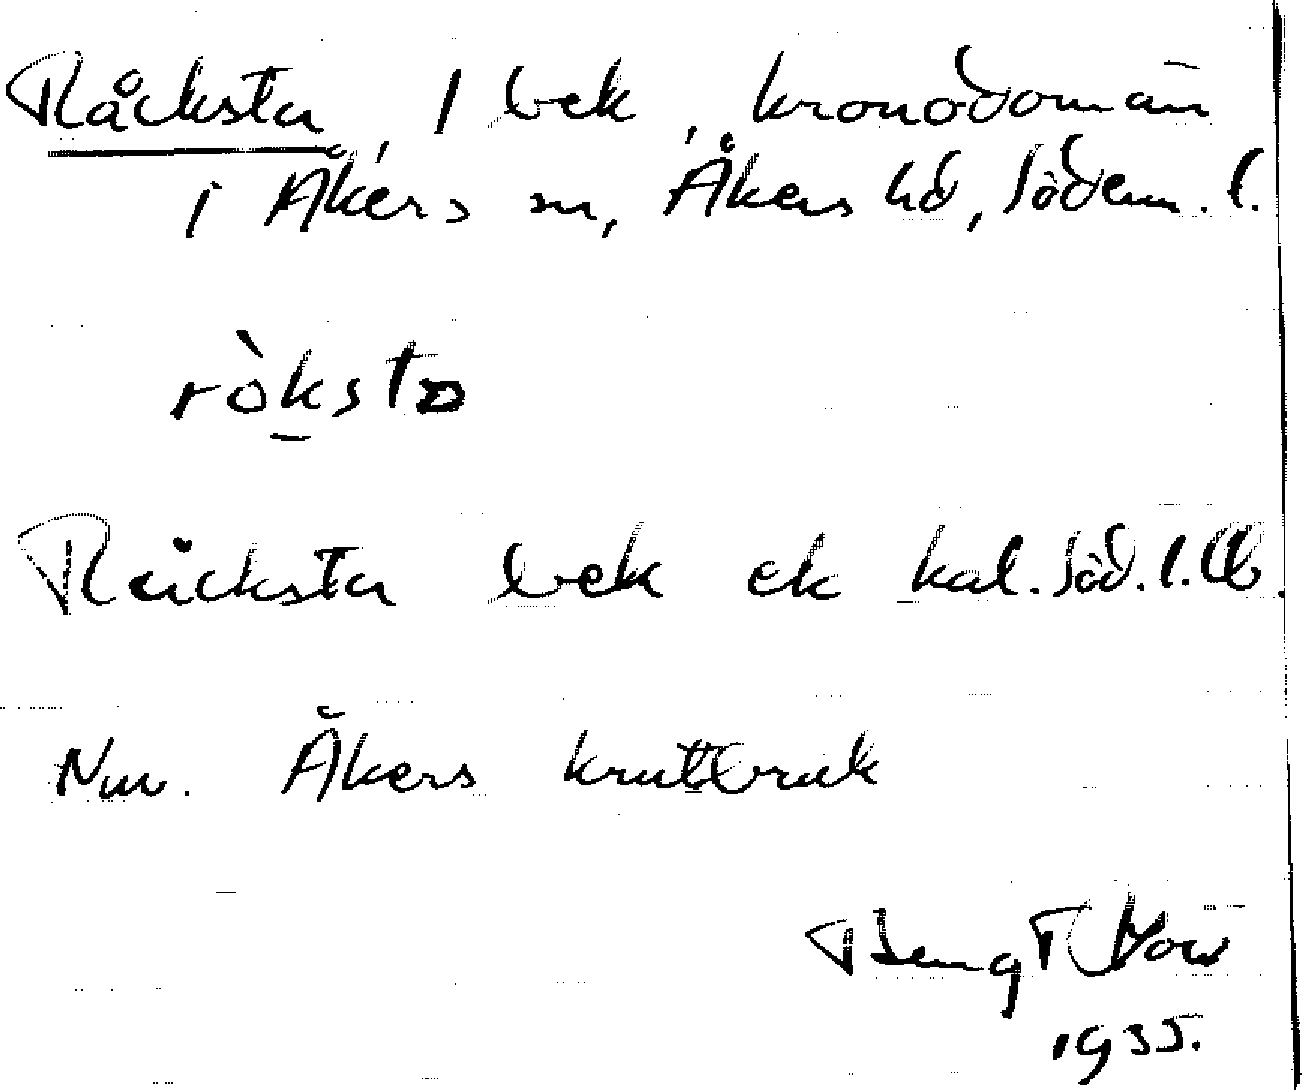 Råcksta, 1 bek, kronodomän
i Åkers sn, Åkers hd, Söderm. l.
ròksta
Råcksta bek ek kal. Söd. l. Ub.
Nuv. Åkers krutbruk
Bengt
1935.